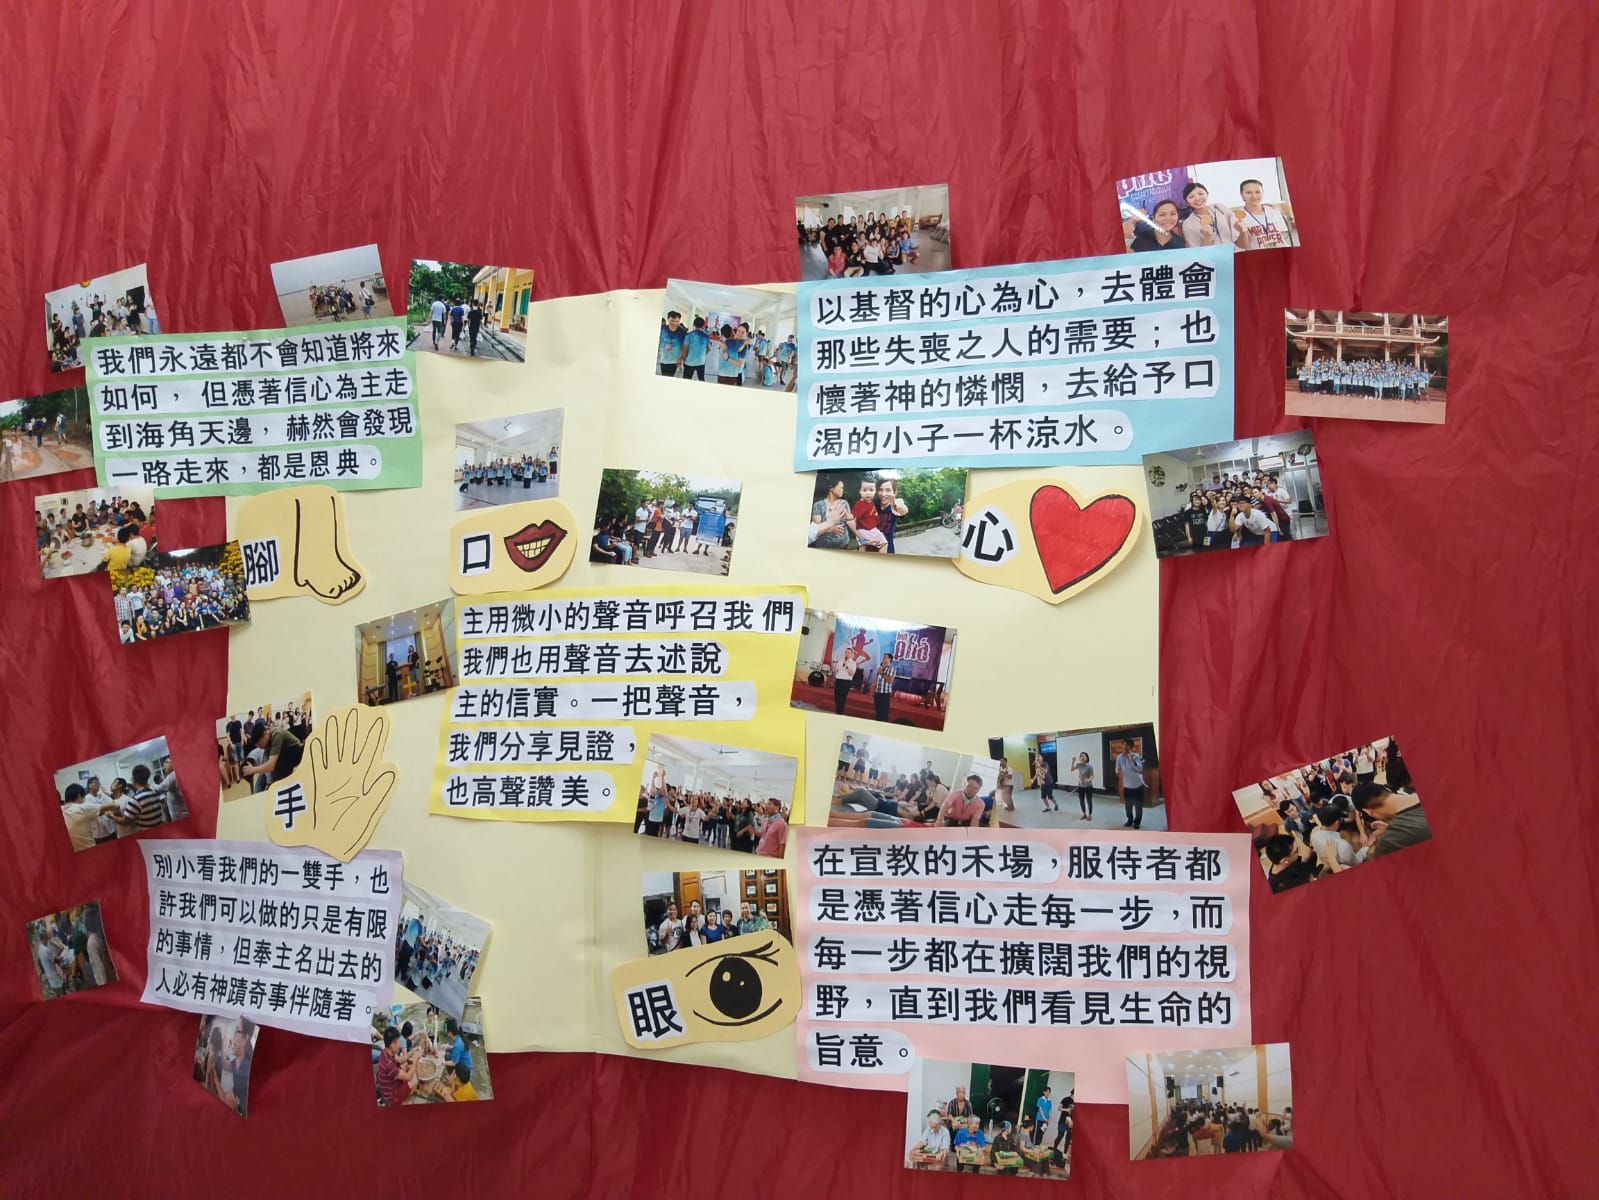 我們永遠都不會知道將來
如何，但憑著信心為主走
到海角天邊，赫然會發現
一路走來，都是恩典。
腳
口
以基督的心為心，去體會
那些失喪之人的需要；也
懷著神的憐憫，去給予口
渴的小子一杯涼水。
心
主用微小的聲音呼召我們
我們也用聲音去述說
主的信實。一把聲音，
我們分享見證，
也高聲讚美。
手
別小看我們的一雙手，也
許我們可以做的只是有限
的事情，但奉主名出去的
人必有神蹟奇事伴隨著。
眼
在宣教的禾場，服侍者都
是憑著信心走每一步，而
每一步都在擴闊我們的視
野，直到我們看見生命的
旨意。
MIRACLE
POWER
phá